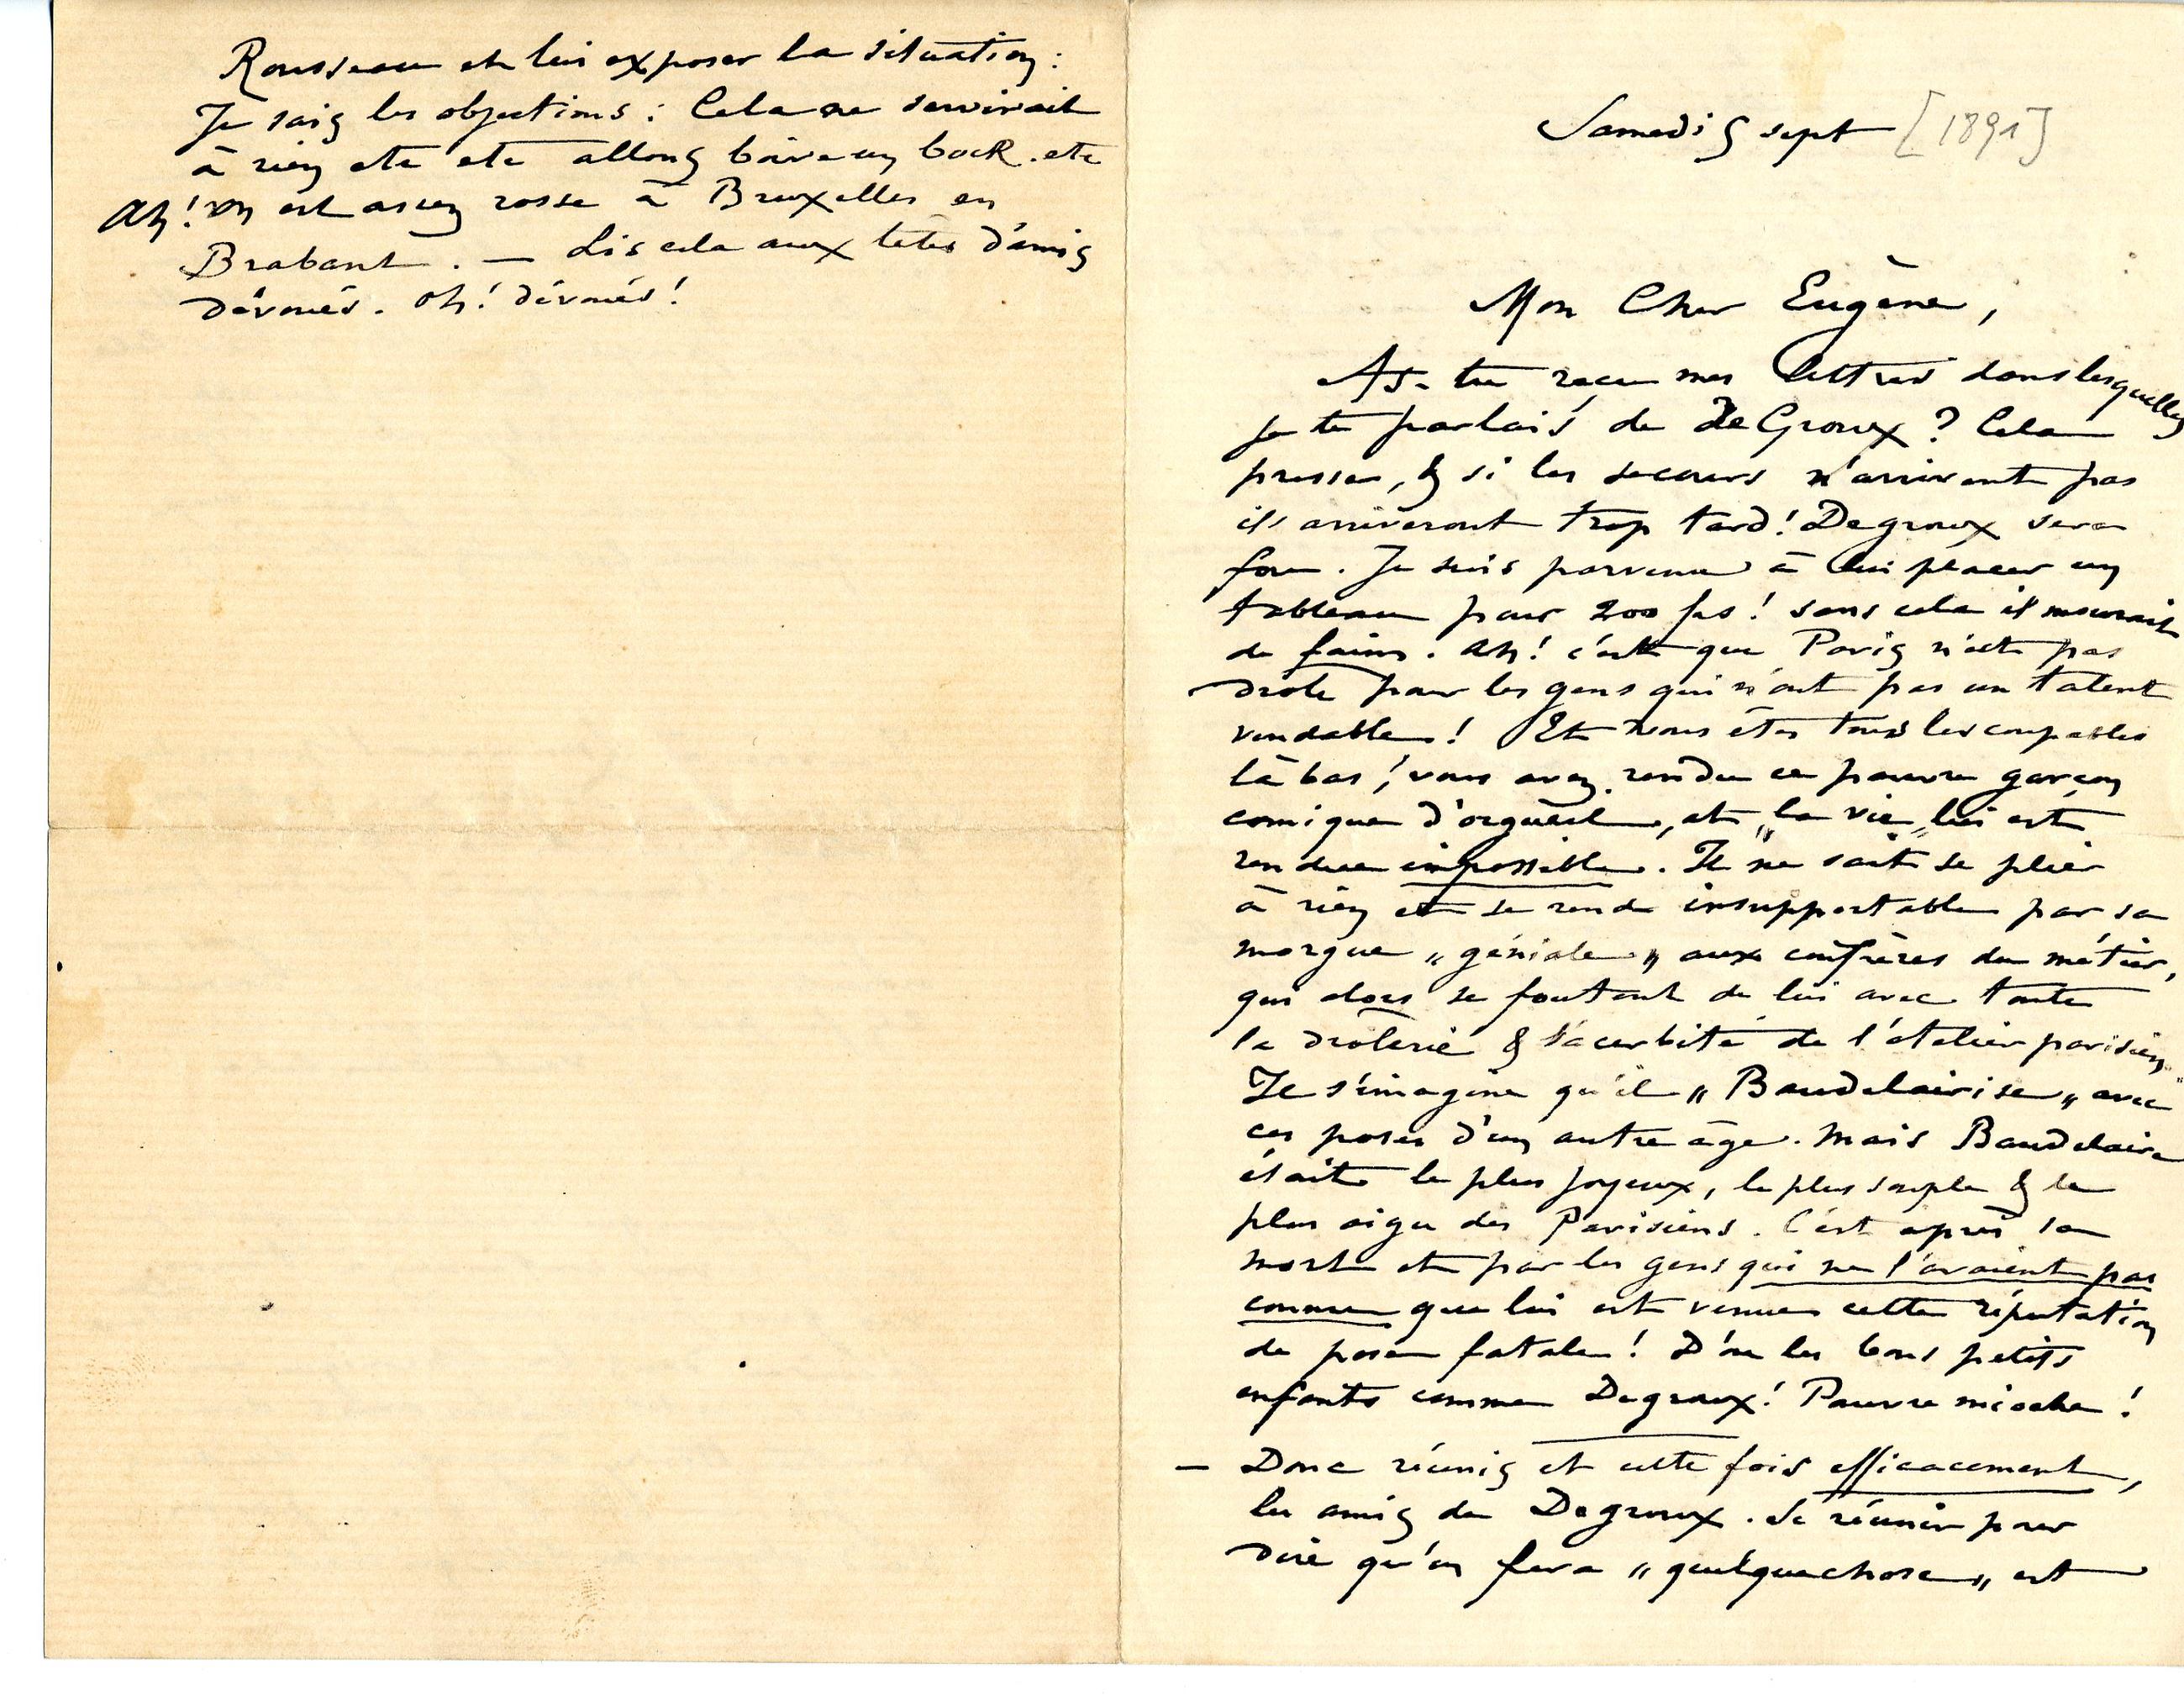 Samedi 5 sept [1891]
Mon Cher Eugène,
As-tu reçu mes lettres dans lesquelles
je te parlais de De Groux ? Cela
presse, & si les secours n'arrivent pas
ils arriveront trop tard! Degroux sera
fou. Je suis parvenu à lui placer un
tableau pour 200 frs! sans cela il mourait
de faim. Ah! c'est que Paris n'est pas
drole pour les gens qui n'ont pas un talent
vendable! Et vous êtes tous les coupables
là bas, vous avez rendu ce pauvre garçon
comique d'orgueil, et „la vie„ lui est
rendue impossible. Il ne sait se plier
à rien et se rend insupportable par sa
morgue „géniale„ aux confrères du métier,
qui alors se foutent de lui avec toute
la drôlerie & l'acerbité de l'atelier parisien.
Il s'imagine qu'il „Baudelairise„ avec
ces poses d'un autre âge. Mais Baudelaire
était le plus joyeux, le plus souple & le
plus aigu des Parisiens. C'est après sa
mort et par les gens qui ne l'avaient pas
connu que lui est venue cette réputation
de pose fatale! D'où les bons petits
enfants comme Degroux! Pauvre mioche!
— Donc réunis et cette fois efficacement,
les amis de Degroux. Se réunir pour
dire qu'on fera „quelquechose„ est
Rousseau et lui exposer la situation:
Je sais les objections: Cela ne servirait
à rien etc etc allons boire un bock. etc
Ah! on est assez rosse à Bruxelles en
Brabant. — Lis cela aux têtes d'amis
dévoués. Oh! dévoués!